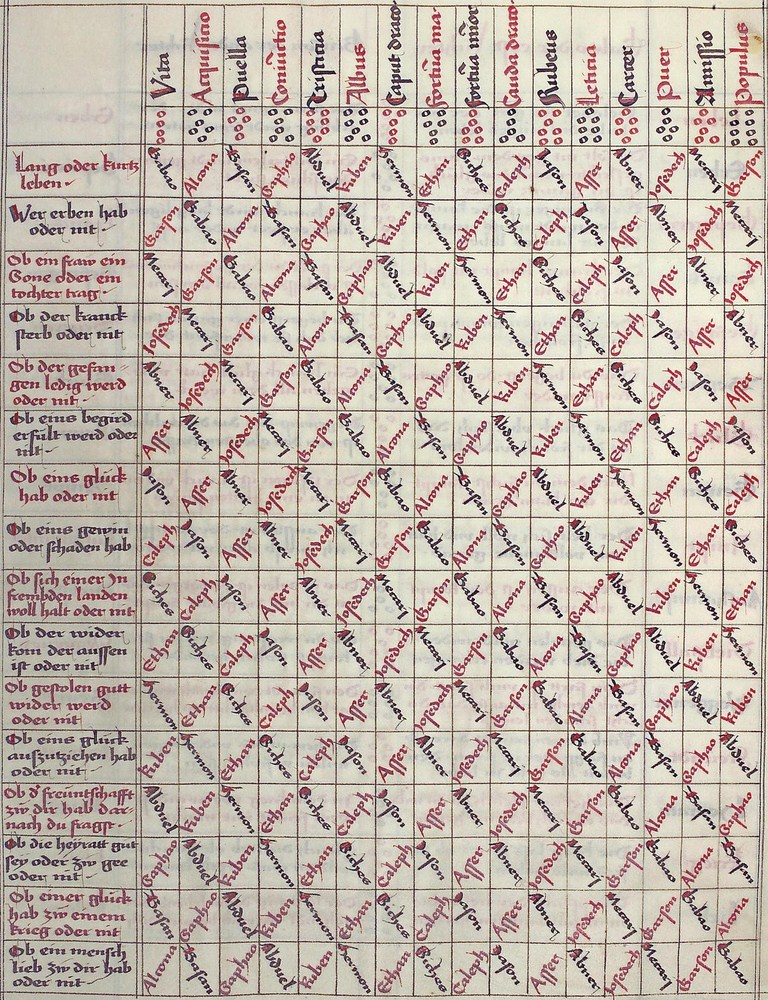 Vita Acquisicio Puella Coniūctio Tristicia Albus Caput draco- fortūa ma- fortūa mīor Cauda draco- Rubeus Leticia Carcer Puer Amissio Populus
Lang oder kurtz
leben
Babao Alcona Basan Gaphao Abduel Kiben Hermon Ethan Riches Caleph Jason Asser Abner Josedech Merari Garson
Wer erben hab
oder nit
Garson Babao Alcona Basan Gaphao Abduel Kiben Hermon Ethan Riches Caleph Jason Asser Abner Josedech Merari
Ob ein fraw ein
Sone oder ein
tochter trag
Merari Garson Babao Alcona Basan Gaphao Abduel Kiben Hermon Ethan Riches Caleph Jason Asser Abner Josedech
Ob der kranck
sterb oder nit
Josedech Merari Garson Babao Alcona Basan Gaphao Abduel Kiben Hermon Ethan Riches Caleph Jason Asser Abner
Ob der gefan-
gen ledig werd
oder nit
Abner Josedech Merari Garson Babao Alcona Basan Gaphao Abduel Kiben Hermon Ethan Riches Caleph Jason Asser
Ob eins begird
erfült werd oder
nit
Asser Abner Josedech Merari Garson Babao Alcona Basan Gaphao Abduel Kiben Hermon Ethan Riches Caleph Jason
Ob eins glück
hab oder nit
Jason Asser Abner Josedech Merari Garson Babao Alcona Basan Gaphao Abduel Kiben Hermon Ethan Riches Caleph
Ob eins gewin
oder schaden hab
Caleph Jason Asser Abner Josedech Merari Garson Babao Alcona Basan Gaphao Abduel Kiben Hermon Ethan Riches
Ob sich einer In
frembden landen
woll halt oder nit
Riches Caleph Jason Asser Abner Josedech Merari Garson Babao Alcona Basan Gaphao Abduel Kiben Hermon Ethan
Ob der wider
kom der aussen
ist oder nit
Ethan Riches Caleph Jason Asser Abner Josedech Merari Garson Babao Alcona Basan Gaphao Abduel Kiben Hermon
Ob gestolen gutt
wider werd
oder nit
Hermon Ethan Riches Caleph Jason Asser Abner Josedech Merari Garson Babao Alcona Basan Gaphao Abduel Kiben
Ob eins glück
auszutziehen hab
oder nit
Kiben Hermon Ethan Riches Caleph Jason Asser Abner Josedech Merari Garson Babao Alcona Basan Gaphao Abduel
Ob d' freüntschafft
zw dir hab dar-
nach du fragst
Abduel Kiben Hermon Ethan Riches Caleph Jason Asser Abner Josedech Merari Garson Babao Alcona Basan Gaphao
Ob die heyratt gut
sey oder zw gee
oder nit
Gaphao Abduel Kiben Hermon Ethan Riches Caleph Jason Asser Abner Josedech Merari Garson Babao Alcona Basan
Ob einer glück
hab zw einem
krieg oder nit
Basan Gaphao Abduel Kiben Hermon Ethan Riches Caleph Jason Asser Abner Josedech Merari Garson Babao Alcona
Ob ein mensch
lieb zw dir hab
oder nit
Alcona Basan Gaphao Abduel Kiben Hermon Ethan Riches Caleph Jason Asser Abner Josedech Merari Garson Babao